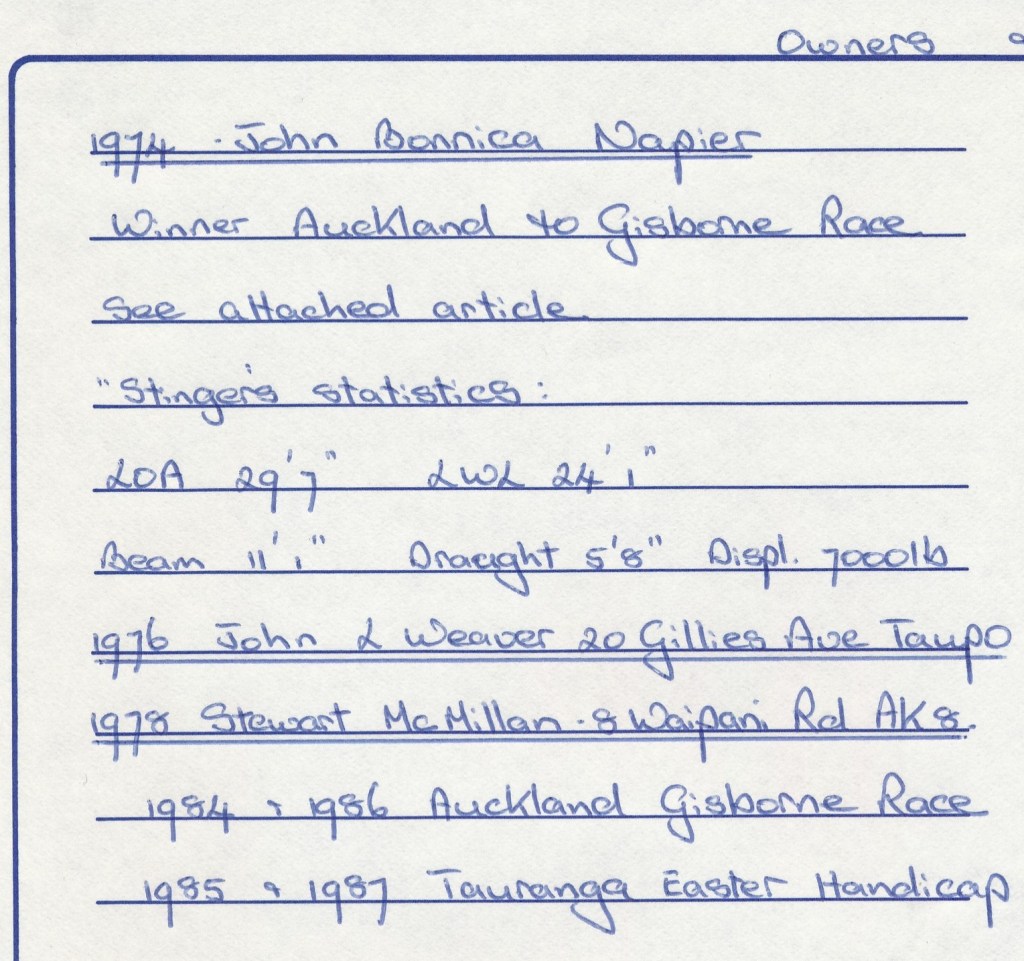 Owners &
1974 - John Bonnica Napier
Winner Auckland to Gisborne Race
See attached article.
"Stinger's statistics:
LOA 29'7" LWL 24'1"
Beam 11'1" Draught 5'8" Displ. 7000lb
1976 John L Weaver 20 Gillies Ave Taupo
1978 Stewart McMillan - 8 Waipani Rd AK8.
1984 & 1986 Auckland Gisborne Race
1985 & 1987 Tauranga Easter Handicap